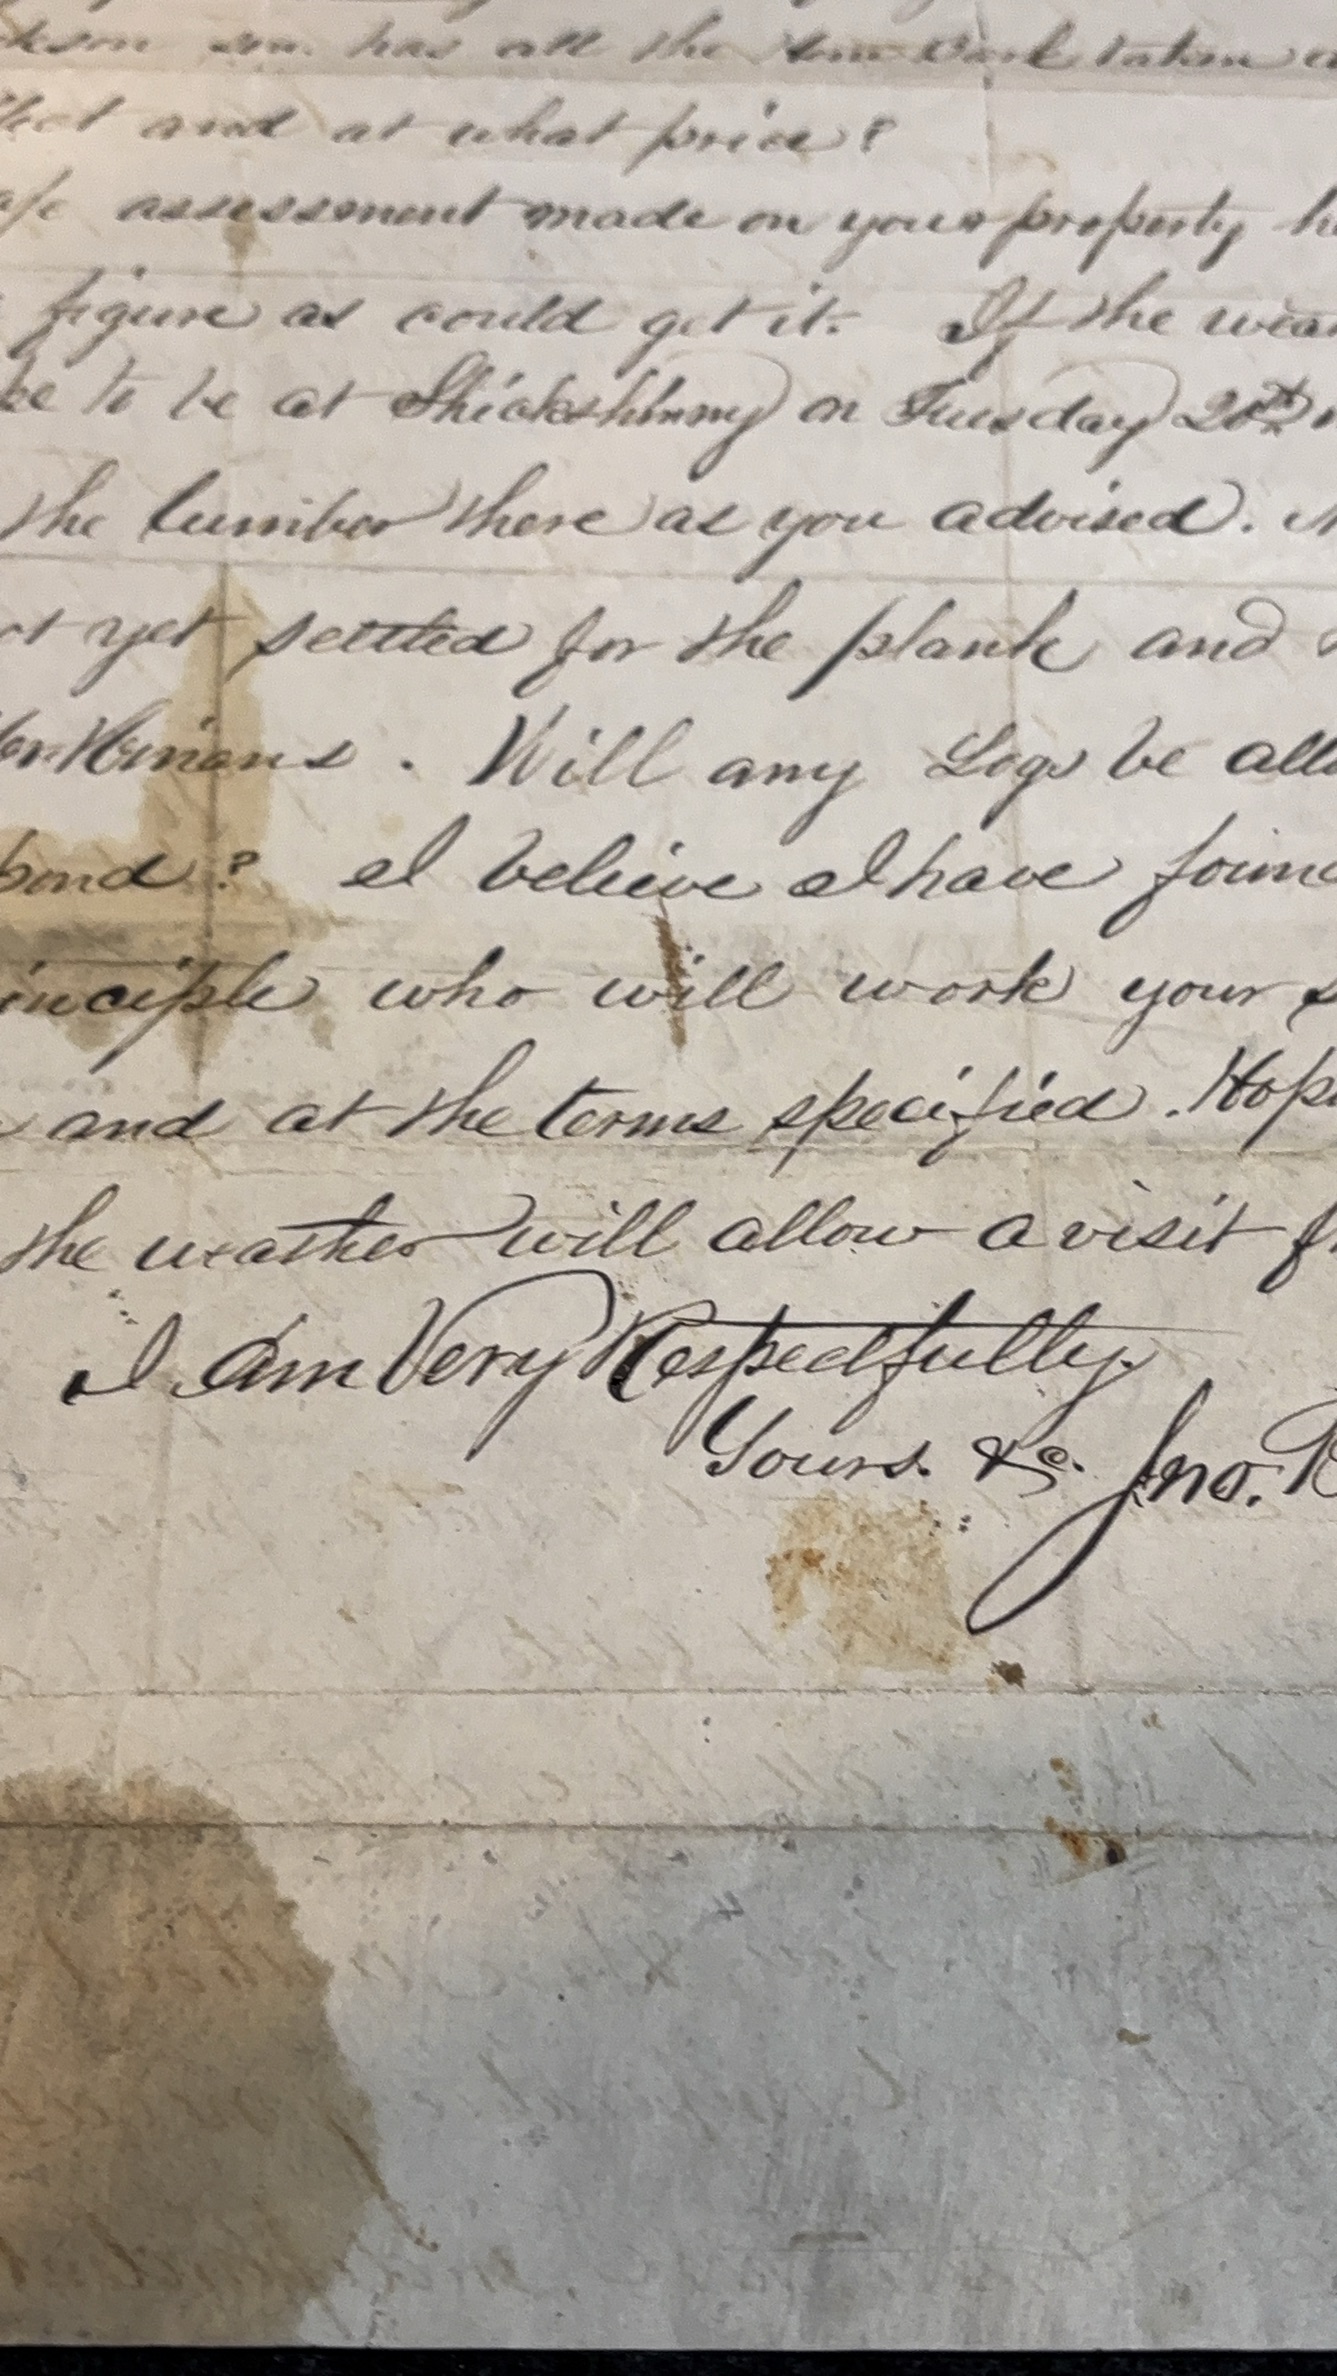 son. has all the Hem Bark taken
and at what price?
assessment made on your property
figure as could get it. If the
to be at Shickshinny on Tuesday 20th
the lumber there as you advised.
yet settled for the plank and
. Will any Logs be
? I believe I have
who will work your
and at the terms specified. Hop
the weather will allow a visit
I Am Very Respectfully
Yours. &c. Jno. B